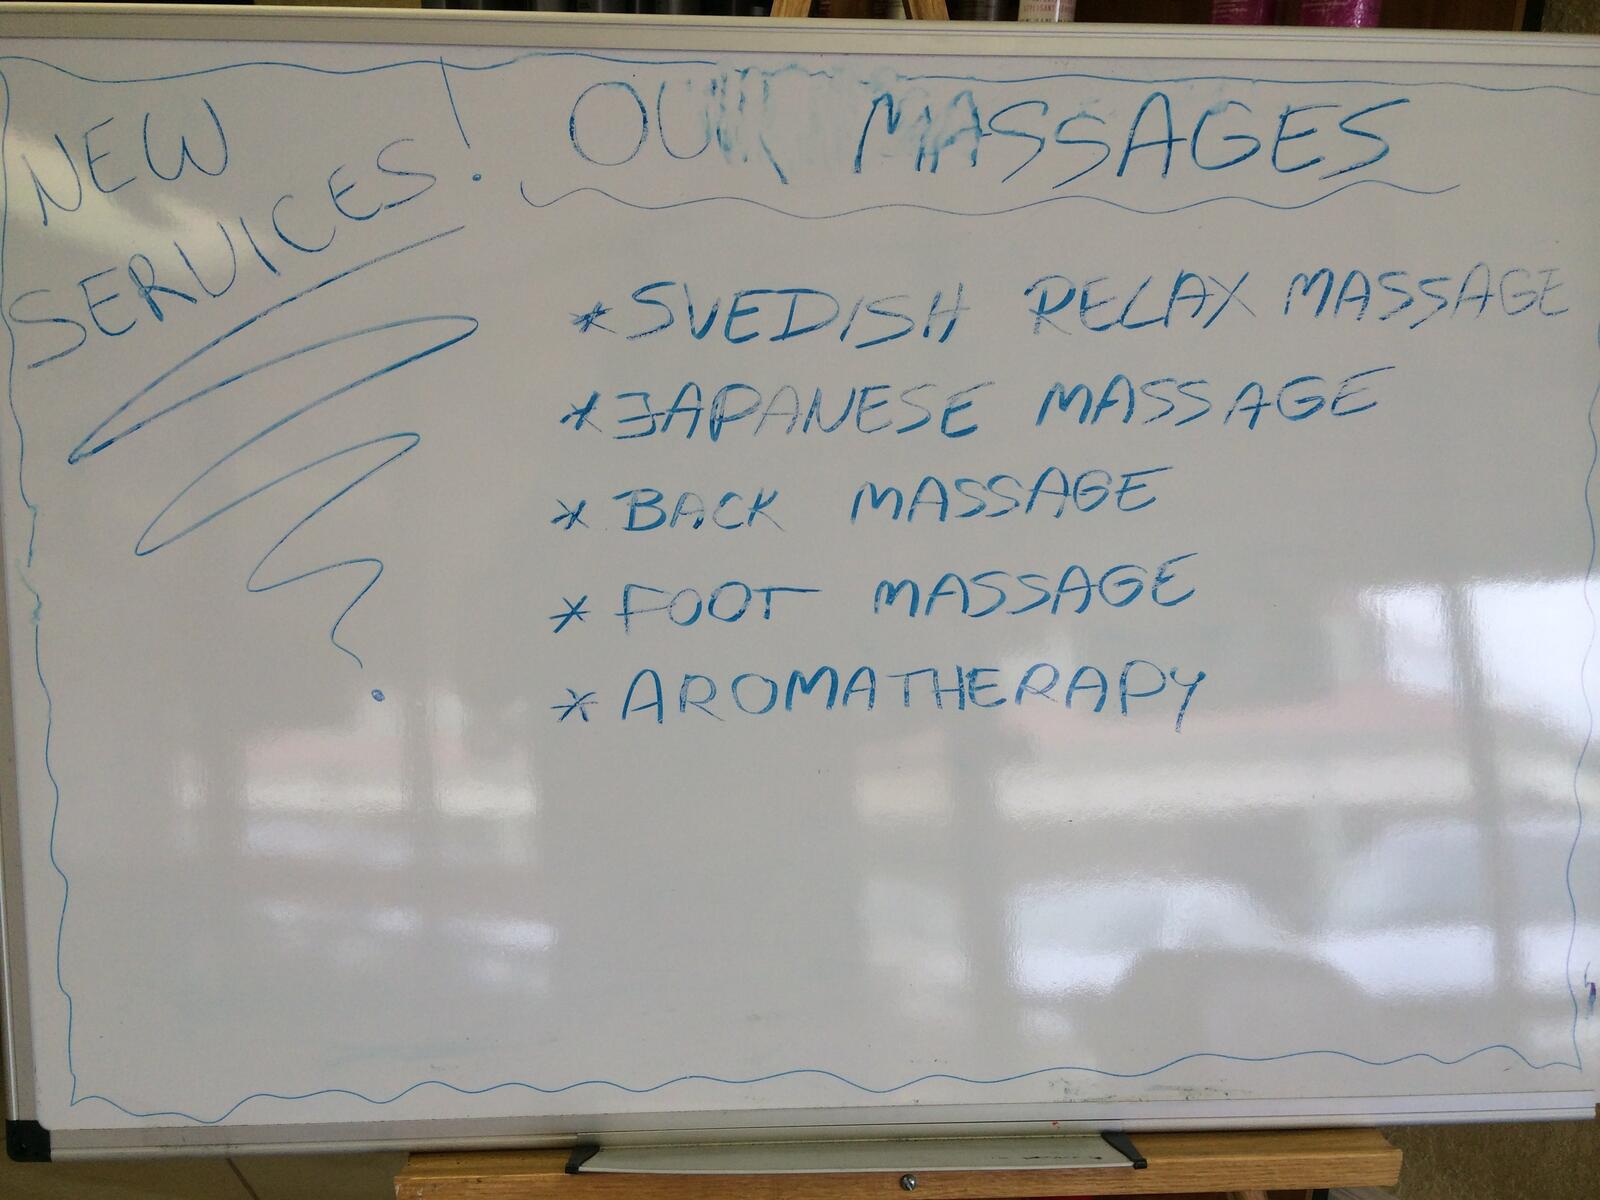 NEW
SERVICES!
OUR MASSAGES
*SVEDISH RELAX MASSAGE
*JAPANESE MASSAGE
* BACK MASSAGE
* FOOT MASSAGE
* AROMATHERAPY